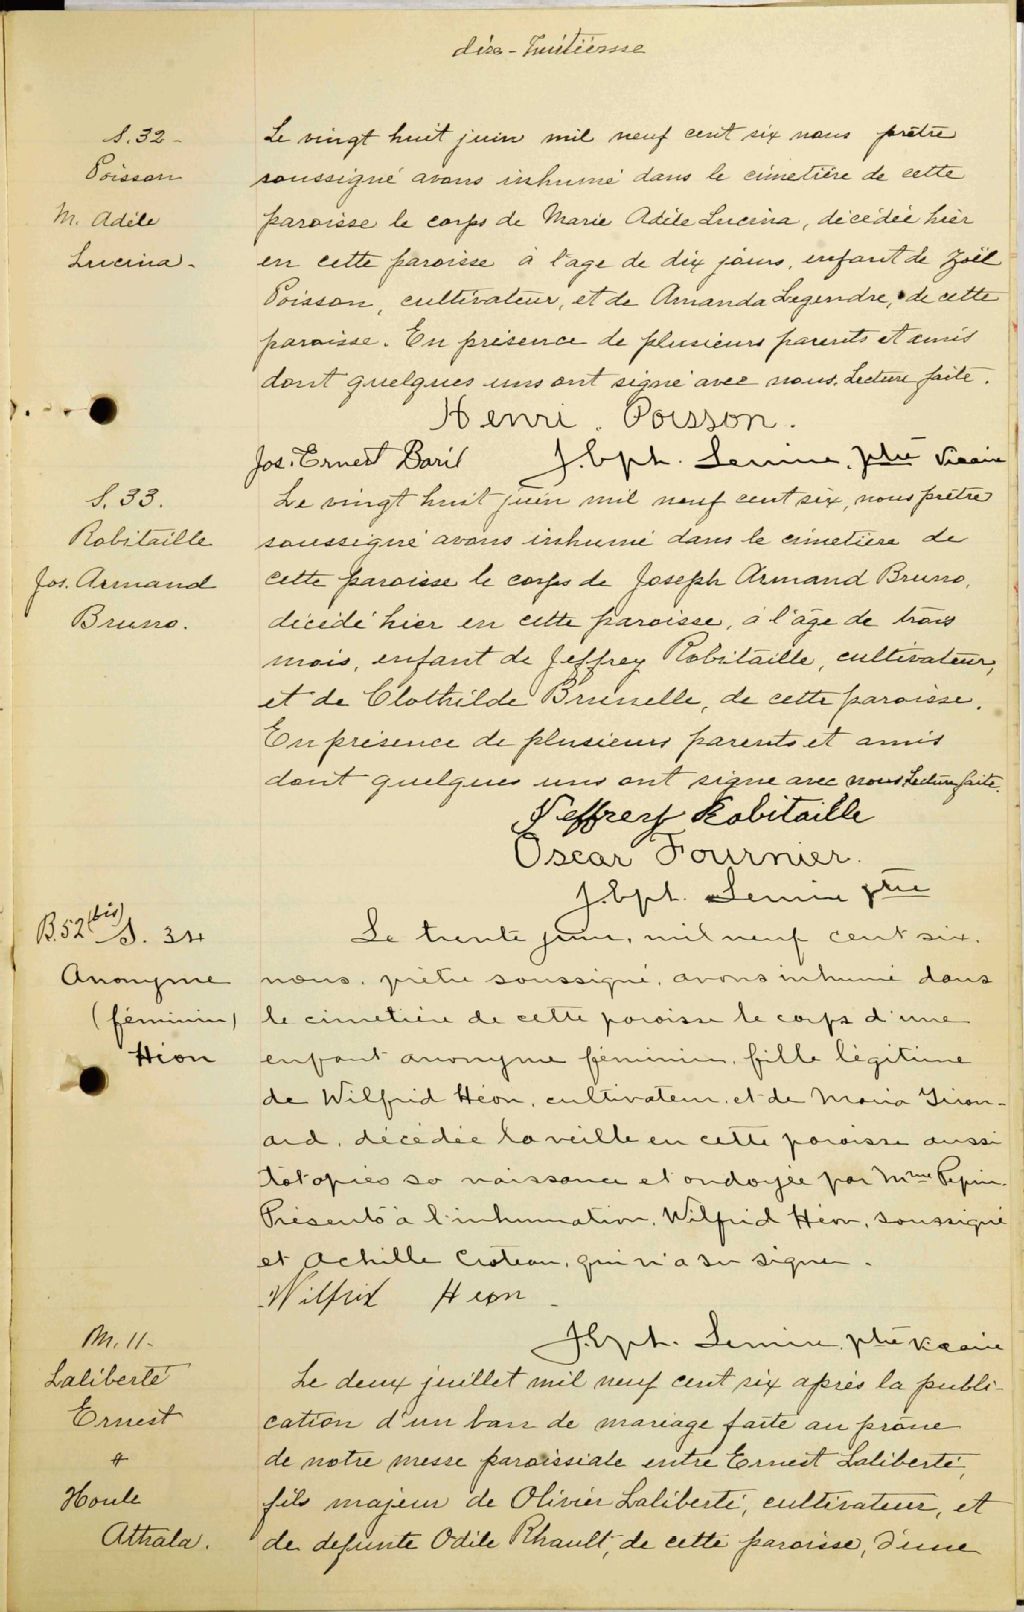 dix-huitième
S. 32 -
Poisson
M. Adèle
Lucina -
Le vingt huit juin mil neuf cent six nous prêtre
soussigné avons inhumé dans le cimetière de cette
paroisse le corps de Marie Adèle Lucina, décédée hier
en cette paroisse à l'age de dix jours, enfant de Joël
Poisson, cultivateur, et de Amanda Legendre, de cette
paroisse. En présence de plusieurs parents et amis
dont quelques uns ont signé avec nous. Lecture faite.
Henri. Poisson.
Jos. Ernest Baril J. Eph. ptre Vicaire
S. 33.
Robitaille
Jos. Armand
Bruno.
Le vingt huit juin mil neuf cent six, nous prêtre
soussigné avons inhumé dans le cimetière de
cette paroisse le corps de Joseph Armand Bruno,
décédé hier en cette paroisse, à l'âge de trois
mois, enfant de Jeffrey Robitaille, cultivateur,
et de Clothilde Brunelle, de cette paroisse.
En présence de plusieurs parents et amis
dont quelques uns ont signé avec nous Lecture faite.
Jeffrey Robitaille
Oscar Fournier.
J. Eph. ptre
B. 52 (bis) S. 34
Anonyme
(féminin)
Héon
Le trente juin, mil neuf cent six.
nous, prêtre soussigné, avons inhumé dans
le cimetière de cette paroisse le corps d'une
enfant anonyme féminin, fille légitime
de Wilfrid Héon, cultivateur, et de Maria Girou-
ard, décédée la veille en cette paroisse aussi
tôt après sa naissance et ondoyée par Mme Pepin.
Présents à l'inhumation, Wilfrid Héon, soussigné
et Achille Croteau, qui n'a su signer.
Wilfrid Heon
J. Eph. ptre vicaire
M. 11 -
Laliberté
Ernest
&
Houle
Athala.
Le deux juillet mil neuf cent six après la publi-
cation d'un ban de mariage faite au prône
de notre messe paroissiale entre Ernest Laliberté,
fils majeur de Olivier Laliberté, cultivateur, et
de defunte Odile Rhault, de cette paroisse, d'une